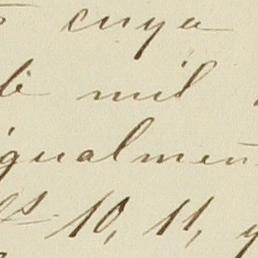 cuya
mil
igualmen
10, 11, y